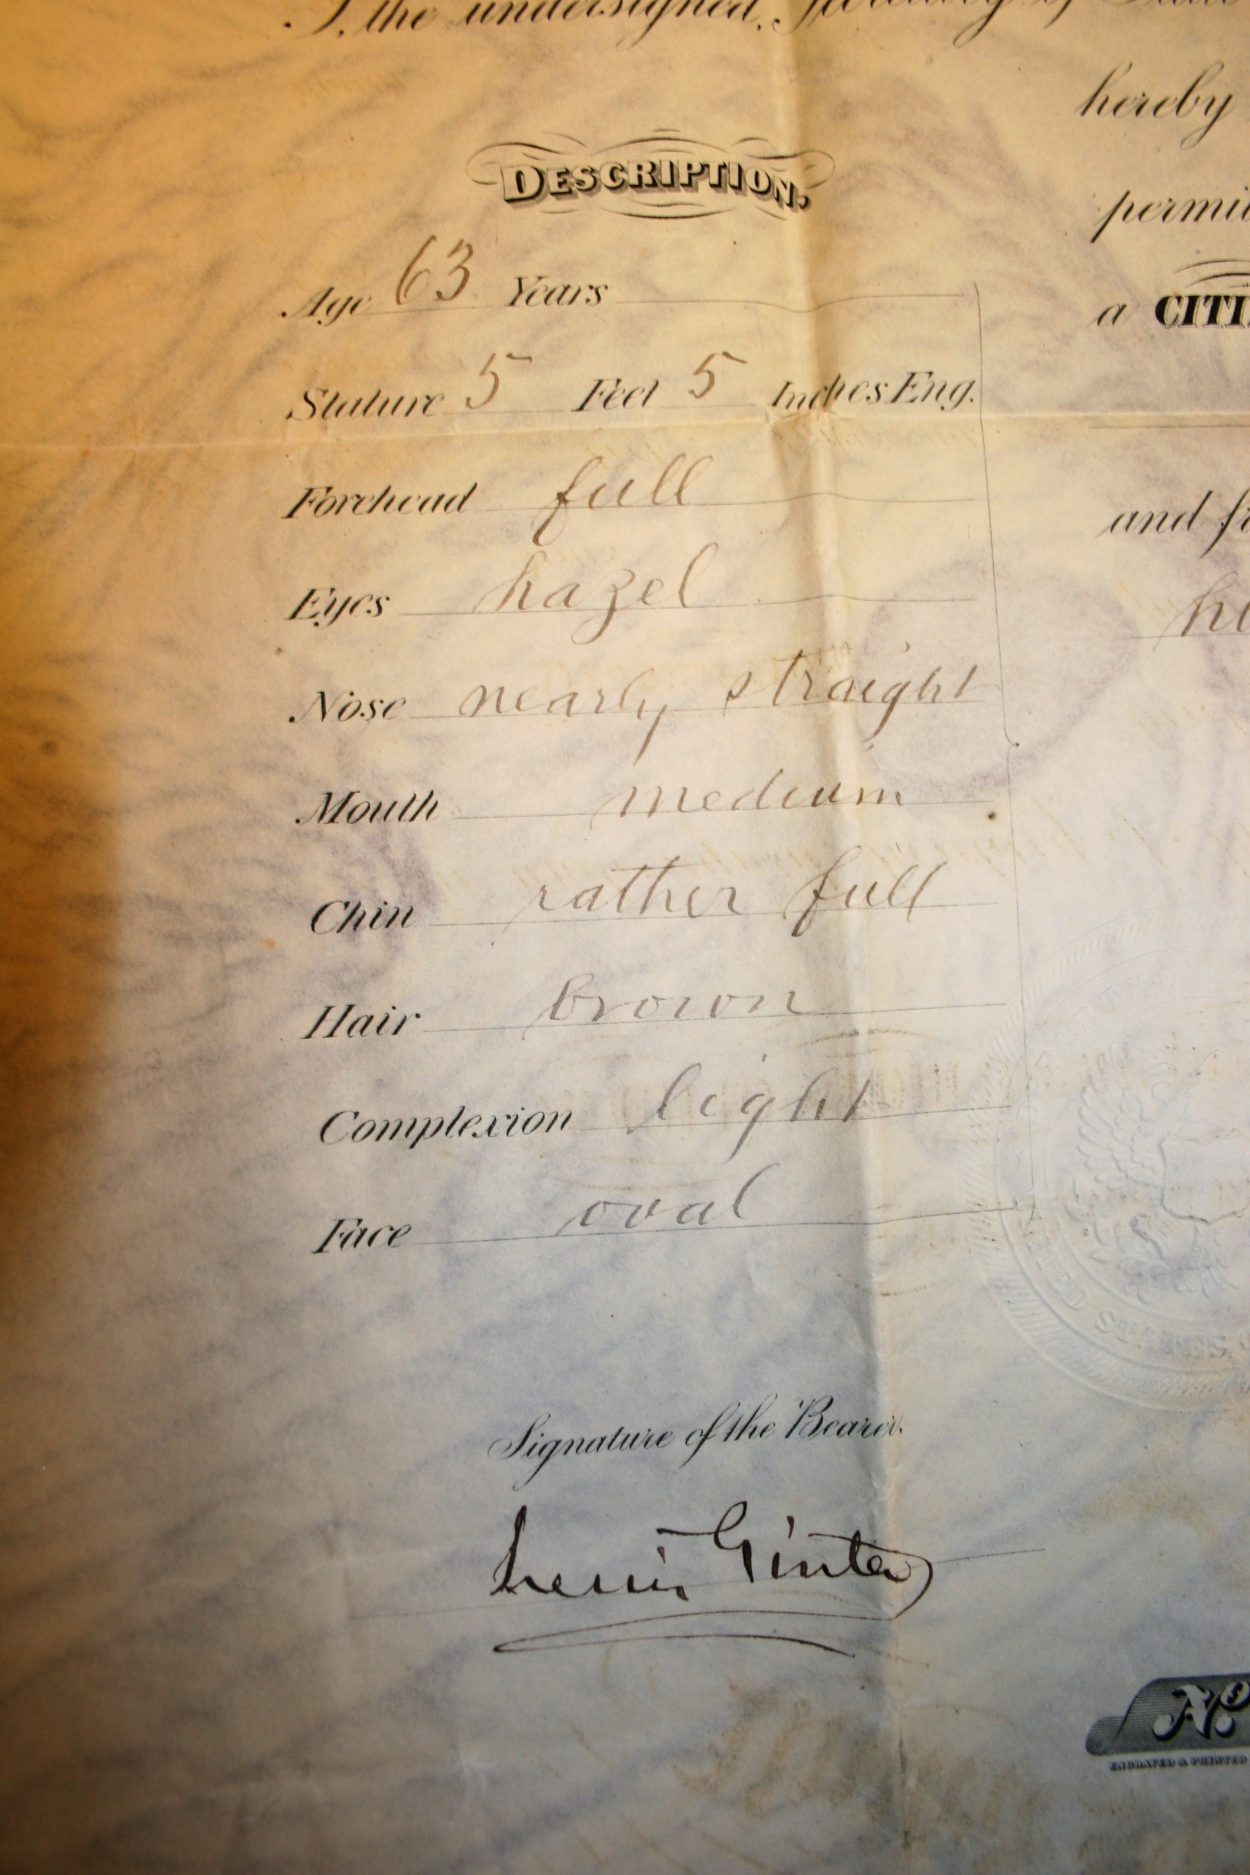 I, the undersigned, Secretary of State
hereby
DESCRIPTION.
permi
Age 63 Years
a CITI
Stature 5 Feet 5 Inches Eng.
Forehead full
and fr
Eyes hazel
Nose nearly straight
Mouth medium
Chin rather full
Hair brown
Complexion light
Face oval
Signature of the Bearer.
Lewis Ginter
No.
ENGRAVED & PRINTED